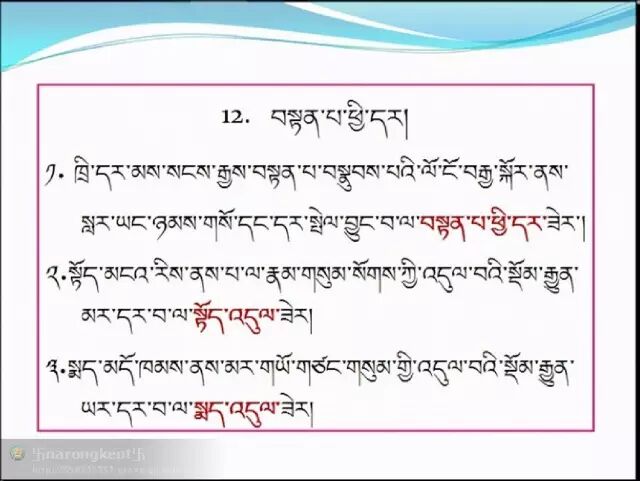 12. བསྟན་པ་ཕྱི་དར།
༡. ཁྲི་དར་མས་སངས་རྒྱས་བསྟན་པ་བསྣུབས་པའི་ལོ་ངོ་བརྒྱ་སྐོར་ནས་
སླར་ཡང་ཉམས་གསོ་དང་དར་སྤེལ་བྱུང་བ་ལ་བསྟན་པ་ཕྱི་དར་ཟེར།
༢. སྟོད་མངའ་རིས་ནས་པ་ལ་རྣམ་གསུམ་སོགས་ཀྱི་འདུལ་བའི་སྡོམ་རྒྱུན་
མར་དར་བ་ལ་སྟོད་འདུལ་ཟེར།
༣. སྨད་མདོ་ཁམས་ནས་མར་གཡོ་གཙང་གསུམ་གྱི་འདུལ་བའི་སྡོམ་རྒྱུན་
ཡར་དར་བ་ལ་སྨད་འདུལ་ཟེར།
卐narongkent卐